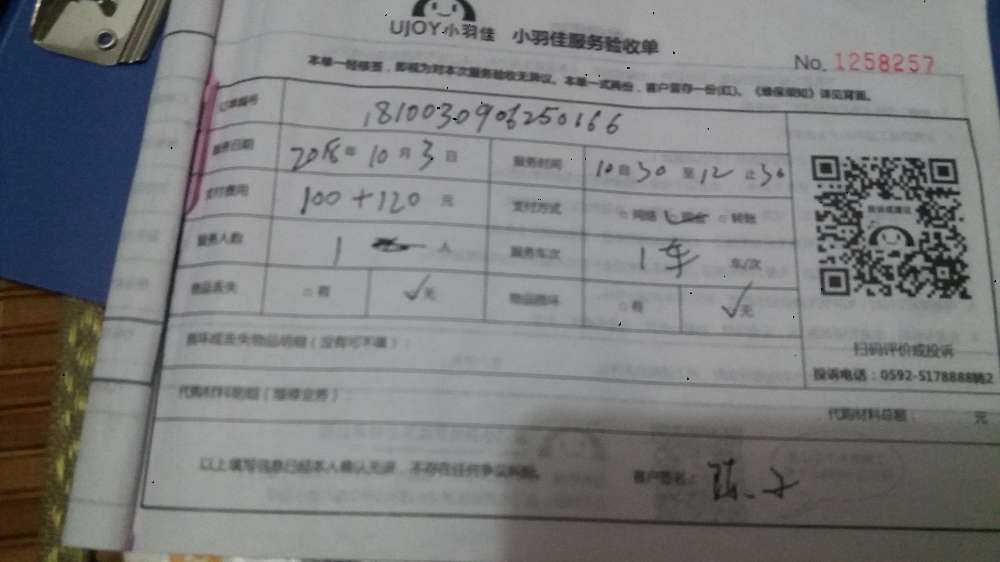 UJOY小羽佳 小羽佳服务验收单
No. 1258257
本单一经核签，即视为对本次服务验收无异议。本单一式两份，客户留存一份(红)。《维保须知》详见背面。
订单编号 1810030906250166
服务日期 2018年10月3日 服务时间 10自30至12止30
支付费用 100+120 元 支付方式 □网络 现金 □转账
服务人数 1 人 服务车次 1车 车/次
物品丢失 □有 ✓无 物品损坏 □有 ✓无
投诉或建议
扫码评价或投诉
投诉电话：0592-5178888转2
损坏或丢失物品明细（没有可不填）：
代购材料明细（维修业务）： 代购材料总额： 元
以上填写信息已经本人确认无误，不存在任何争议纠纷。 客户签名：